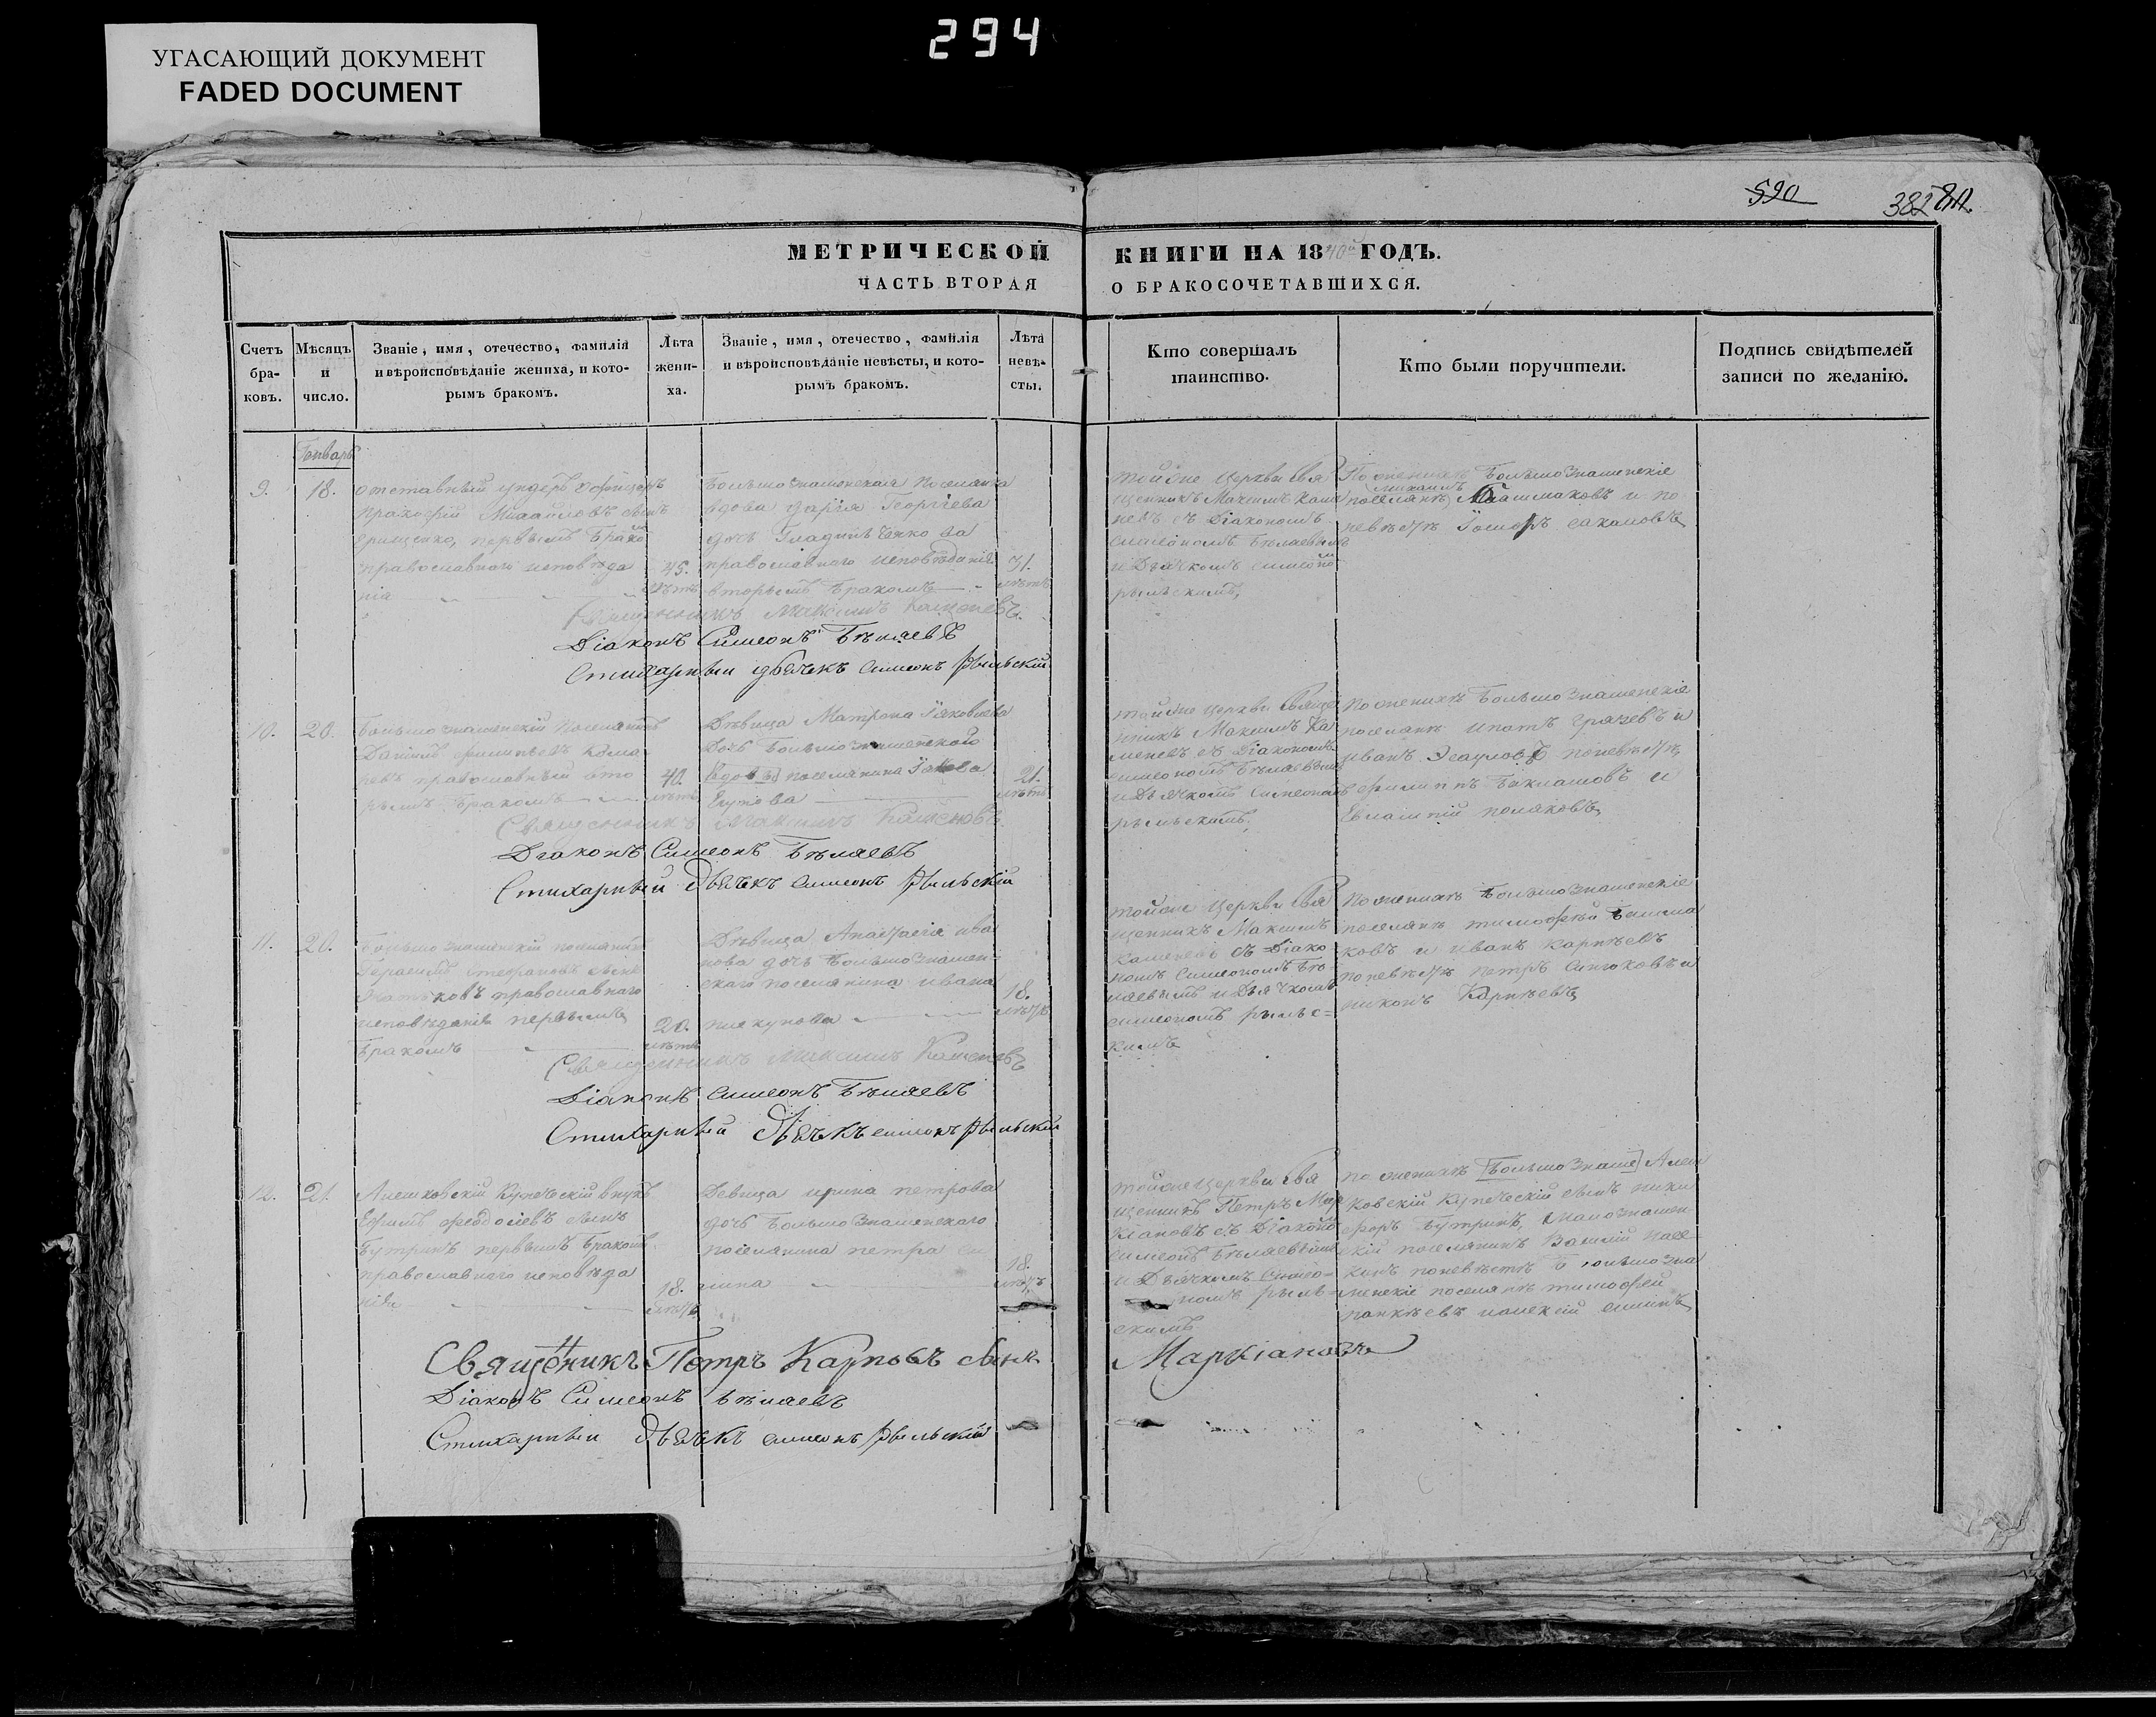 294
УГАСАЮЩИЙ ДОКУМЕНТ
FADED DOCUMENT
590
382
МЕТРИЧЕСКОЙ КНИГИ НА 1840й ГОДЪ.
ЧАСТЬ ВТОРАЯ О БРАКОСОЧЕТАВШИХСЯ.
Счетъ
бра-
ковъ.
Мѣсяцъ
и
число.
Званіе, имя, отечество, фамилія
и вѣроисповѣданіе жениха, и кото-
рымъ бракомъ.
Лѣта
жени-
ха.
Званіе, имя, отечество, фамилія
и вѣроисповѣданіе невѣсты, и кото-
рымъ бракомъ.
Лѣта
невѣ-
сты.
Кто совершалъ
таинство.
Кто были поручители.
Подпись свидѣтелей
записи по желанію.
Генварь
9.
18.
отставный ундеръ офицеръ
Прокофій Михайловъ сынъ
Грищенко, первымъ брако
православнаго исповѣда
нія
45.
лѣтъ
Большознаменская поселянка
вдова Дарія Георгіева
дочь
православнаго исповѣданія
вторымъ бракомъ
31.
лѣтъ
тойже церкви Свя
щенникъ Максимъ Каме
невъ съ Діакономъ
Симеономъ Бѣляевымъ
и Дьячкомъ Симеоно
рыльскимъ,
По женихѣ Большознаменскіе
поселянѣ Михаилъ Башмаковъ и по
невѣстѣ
Священникъ Максимъ Каменевъ
Діаконъ Симеонъ Бѣляевъ
Стихарный дьячекъ Симеонъ Рыльскій
10.
20.
Большознаменскій поселянинъ
Даніилъ Филиповъ Кома
ревъ православный вто
рымъ бракомъ
40.
лѣтъ
Дѣвица Матрона Іаковлева
дочь Большознаменского
поселянина Іакова
21.
лѣтъ
тойже церкви Священ
никъ Максимъ Ка
меневъ съ Діакономъ
Симеономъ Бѣляевымъ
и Дьячкомъ Симеономъ
рыльскимъ,
По женихѣ Большознаменскіе
поселянѣ Ипатъ Грачевъ и
Иванъ Эсауловъ по невѣстѣ
Филиппъ Баклашовъ и
Евлампій Поляковъ
Священникъ Максимъ Каменевъ
Діаконъ Симеонъ Бѣляевъ
Стихарный дьячекъ Симеонъ Рыльскій
11.
20.
Большознаменскій поселянинъ
Герасимъ Стефановъ сынъ
православнаго
исповѣданія первымъ
бракомъ
20.
лѣтъ
Дѣвица Анастасія Ива
нова дочь Большознамен-
скаго поселянина Ивана
18.
лѣтъ
тойже церкви Свя
щенникъ Максимъ
Каменевъ съ Діако
номъ Симеономъ Бѣ-
ляевымъ и Дьячкомъ
Симеономъ рыльс-
кимъ
По женихѣ Большознаменскіе
поселянѣ Тимофей Башма
ковъ и Иванъ Карпѣевъ
по невѣстѣ Петръ Синюковъ и
Никонъ Карпѣевъ
Священникъ Максимъ Каменевъ
Діаконъ Симеонъ Бѣляевъ
Стихарный дьячекъ Симеонъ Рыльскій
12.
21.
Алешковскій Купеческій внукъ
Ефимъ Феодосіевъ сынъ
Бутринъ первымъ бракомъ
православнаго исповѣда
нія
18.
лѣтъ
Девица Ирина Петрова
дочь Большознаменскаго
поселянина Петра
18.
лѣтъ
тойже церкви Свя
щенникъ Петръ Мар
кіановъ съ Діакономъ
Симеономъ Бѣляевымъ
и Дьячкомъ Симео-
номъ рыль-
скимъ
по женихѣ [Большо Знаме] Алеш
ковскій Купеческій сынъ Ники
форъ Бутринъ, Малознамен-
скій поселянинъ Василій
по невѣстѣ Большозна
менскіе поселянѣ Тимофей
Панкѣевъ и Алексій
Священникъ Петръ Карповъ сынъ Маркіановъ
Діаконъ Симеонъ Бѣляевъ
Стихарный дьячекъ Симеонъ Рыльскій